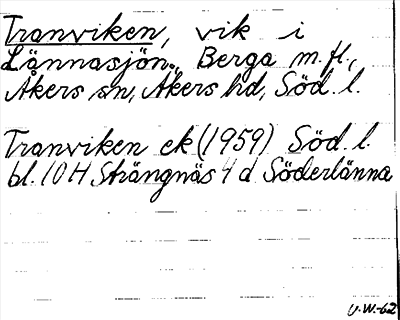 Tranviken, vik i
Lännasjön, Berga m.fl.,
Åkers sn, Åkers hd, Söd. l.
Tranviken ek (1959) Söd. l.
bl. 10 H Strängnäs 4 d Söderlänna
U.W.-62